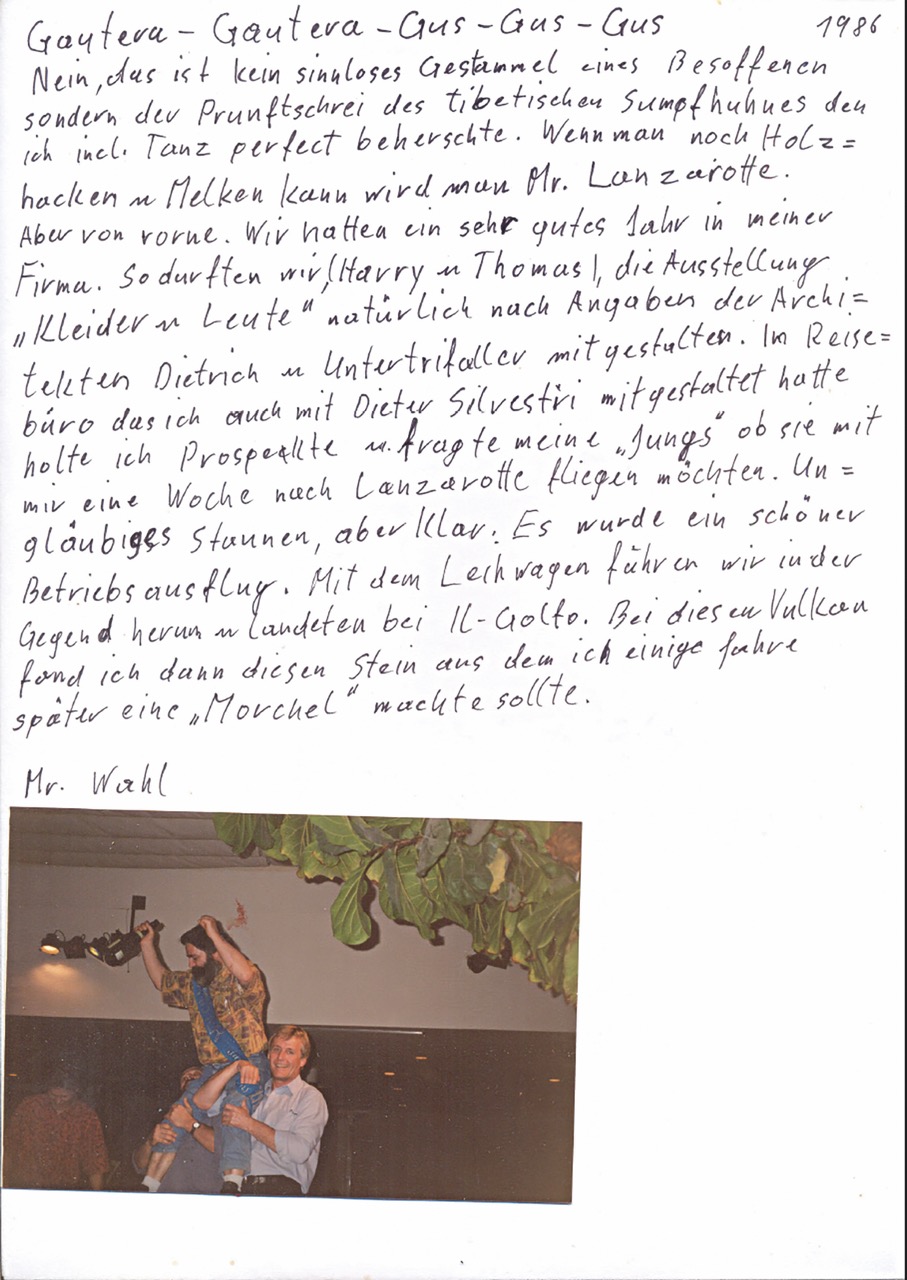 Gaytera - Gautera - Gus - Gus - Gus 1986
Nein, das ist kein sinnloses Gestammel eines Besoffenen
sondern der Prunftschrei des tibetischen Sumpfhuhnes den
ich incl. Tanz perfect beherschte. Wenn man noch Holz=
hacken u Melken kann wird man Mr. Lanzarotte.
Aber von vorne. Wir hatten ein sehr gutes Jahr in meiner
Firma. So durften wir, (Harry u Thomas), die Ausstellung
„Kleider u Leute" natürlich nach Angaben der Archi=
tekten Dietrich u Untertrifaller mitgestalten. Im Reise=
büro das ich auch mit Dieter Silvestri mitgestaltet hatte
holte ich Prospekte u. fragte meine „Jungs" ob sie mit
mir eine Woche nach Lanzarotte fliegen möchten. Un=
gläubiges Staunen, aber Klar. Es wurde ein schöner
Betriebsausflug. Mit dem Leihwagen führen wir in der
Gegend herum u landeten bei Il-Golfo. Bei diesen Vulkan
fand ich dann diesen Stein aus dem ich einige Jahre
später eine „Morchel" machte sollte.
Mr. Wahl